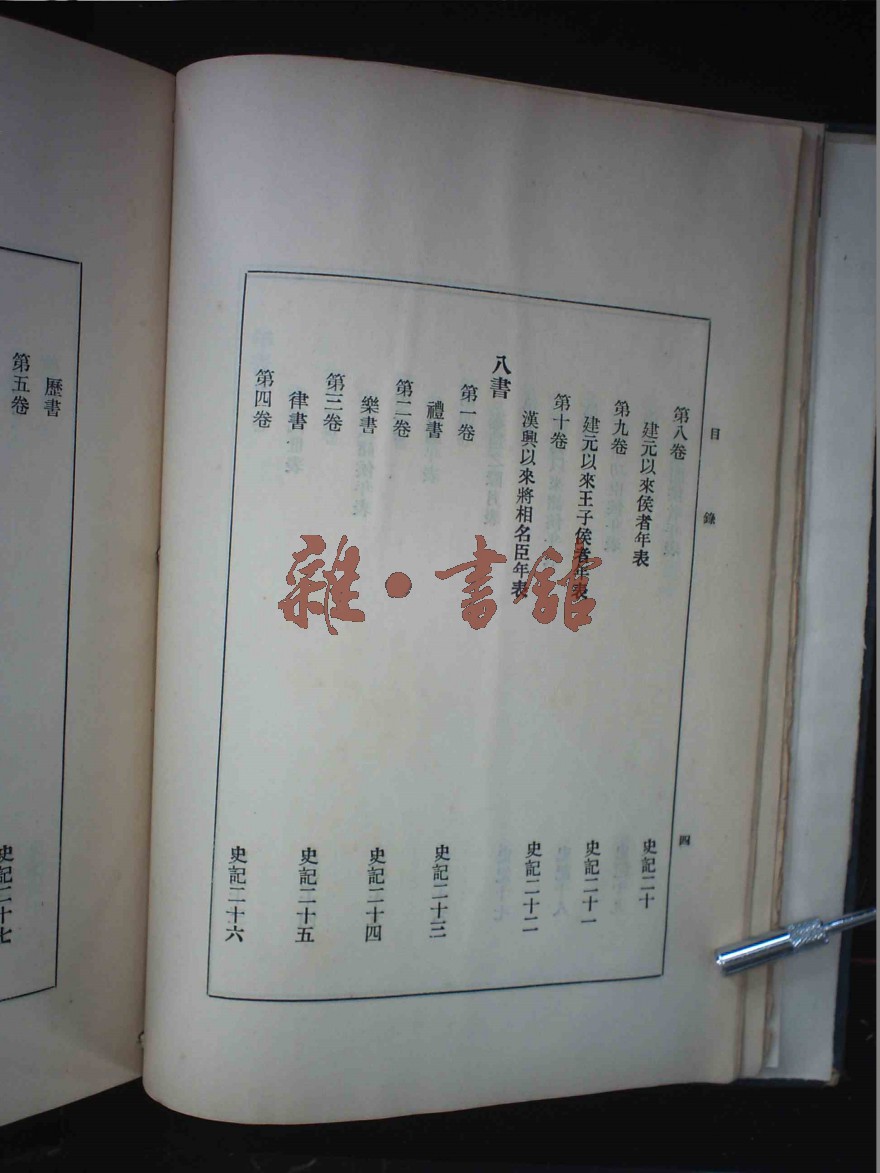 目錄 四
第八卷
建元以來侯者年表 史記二十
第九卷
建元以來王子侯者年表 史記二十一
第十卷
漢興以來將相名臣年表 史記二十二
八書
第一卷
禮書 史記二十三
第二卷
樂書 史記二十四
第三卷
律書 史記二十五
第四卷
史記二十六
歷書
第五卷
史記二十七
雜·書館